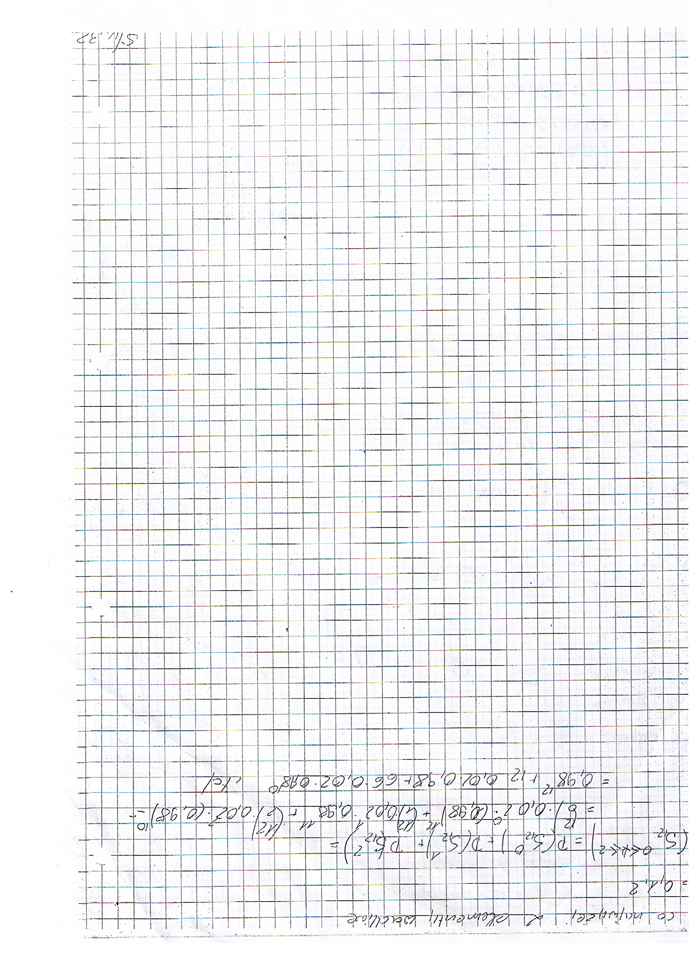 co najwyżej 2 elementy wadliwe
= 0,1,2
(S₁₂ 0≤k≤2) = P(S₁₂⁰) + P(S₁₂¹) + P(S₁₂²) =
= (12 0) · 0,02⁰ · (0,98)¹² + (12 1) 0,02¹ · 0,98¹¹ + (12 2) 0,02² · (0,98)¹⁰ =
= 0,98¹² + 12 · 0,02 0,98 + 66 · 0,02 · 0,98¹⁰
str. 32